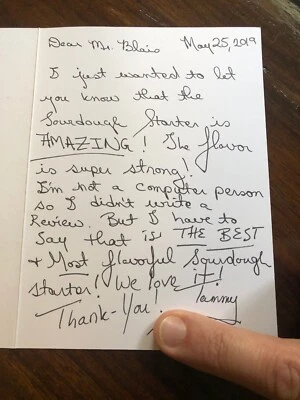 Dear Mr. Blais May 25, 2019
I just wanted to let
you know that the
Sourdough Starter is
AMAZING! The flavor
is super strong!
I'm not a computer person
so I didn't write a
Review. But I have to
say that is THE BEST
+ Most flavorful Sourdough
starter! We love it!
Thank-You! Tammy